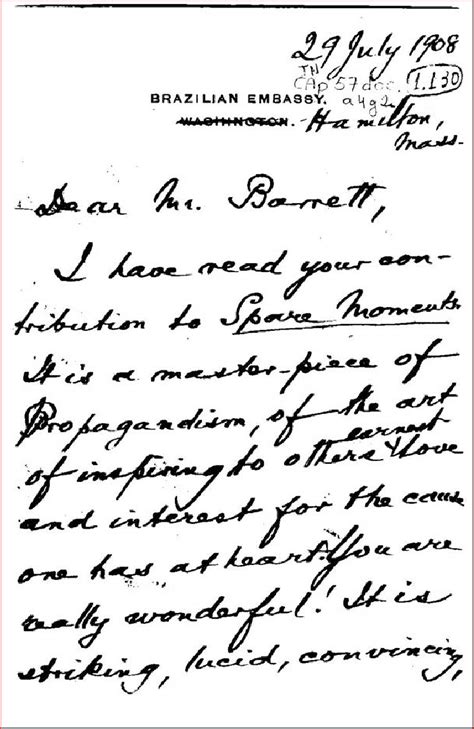 29 July 1908
TN
CAp 57 doc. 1.130
a4g2
BRAZILIAN EMBASSY.
WASHINGTON. Hamilton,
Mass.
Dear Mr. Barrett,
I have read your con-
tribution to Spare Moments.
It is a master-piece of
Propagandism, of the art
earnest
of inspiring to others love
and interest for the cause
one has at heart. You are
really wonderful! It is
striking, lucid, convincing,